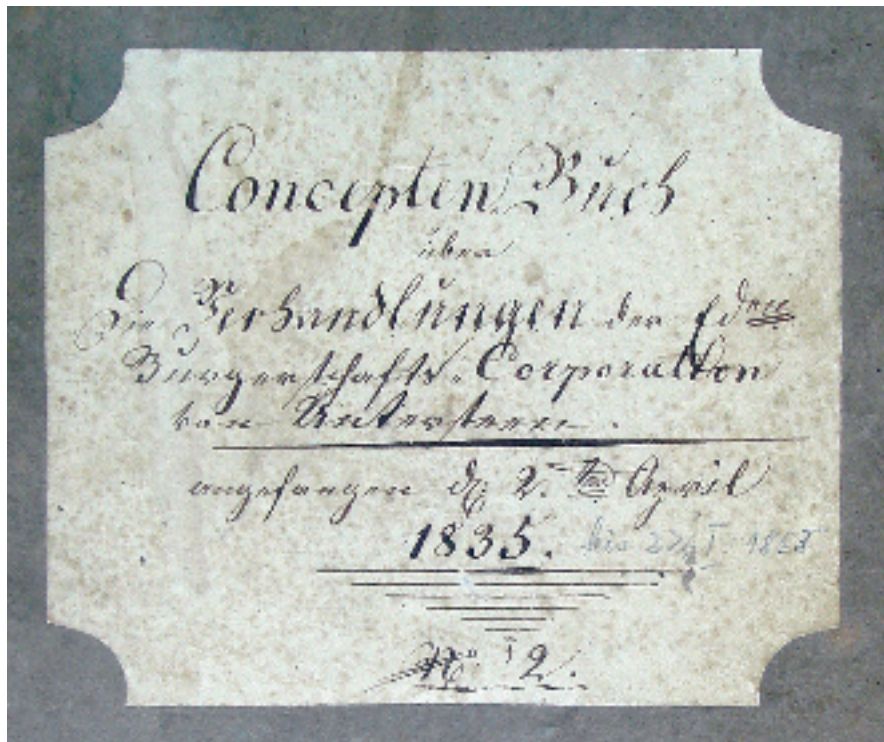 Concepten Buch
über
Die Verhandlungen der Eden
Burgerschafts-Corporation
von Unterseen.
angefangen d. 2.ten April
1835. bis
No. 2.